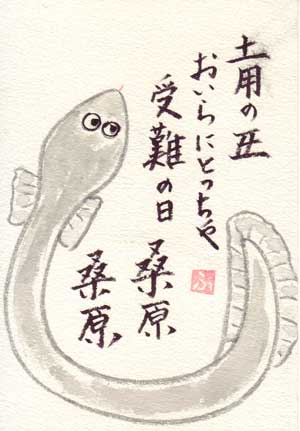 土用の丑
おいらにとっちゃ
受難の日
桑原
桑原
ふ